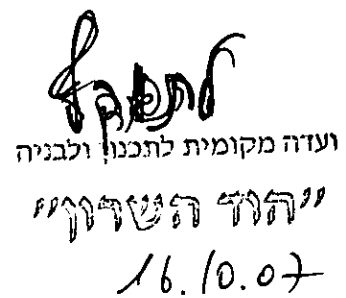 ועדה מקומית לתכנון ולבניה
"הוד השרון"
16.10.07